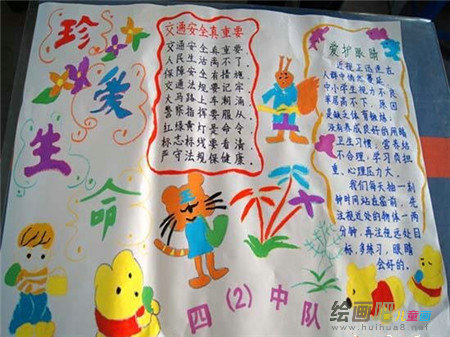 珍
爱
生
命
交通安全真重要
交通安全真重要，
人民生活离不了。
保障安全有措施，
交通法规要记牢，
大马路上车朝涌，
警察指挥服从命令，
红绿黄灯是看清，
标志标线要健康，
严守法规保
爱护眼睛
近视正迅速在
人群中
中小学生视力不良
率居高不下，原因
是缺乏体育锻炼，
没有养成良好的用眼
卫生习惯，营养结
不合理，学习负担
重，心理压力大。
我们每天抽一刻
钟时间站在窗前，先
注视近处的物体一两
分钟，再注视远处目
标，多练习，眼睛
会好的。
四(2)中队
绘画吧儿童画
www.huihua8.net